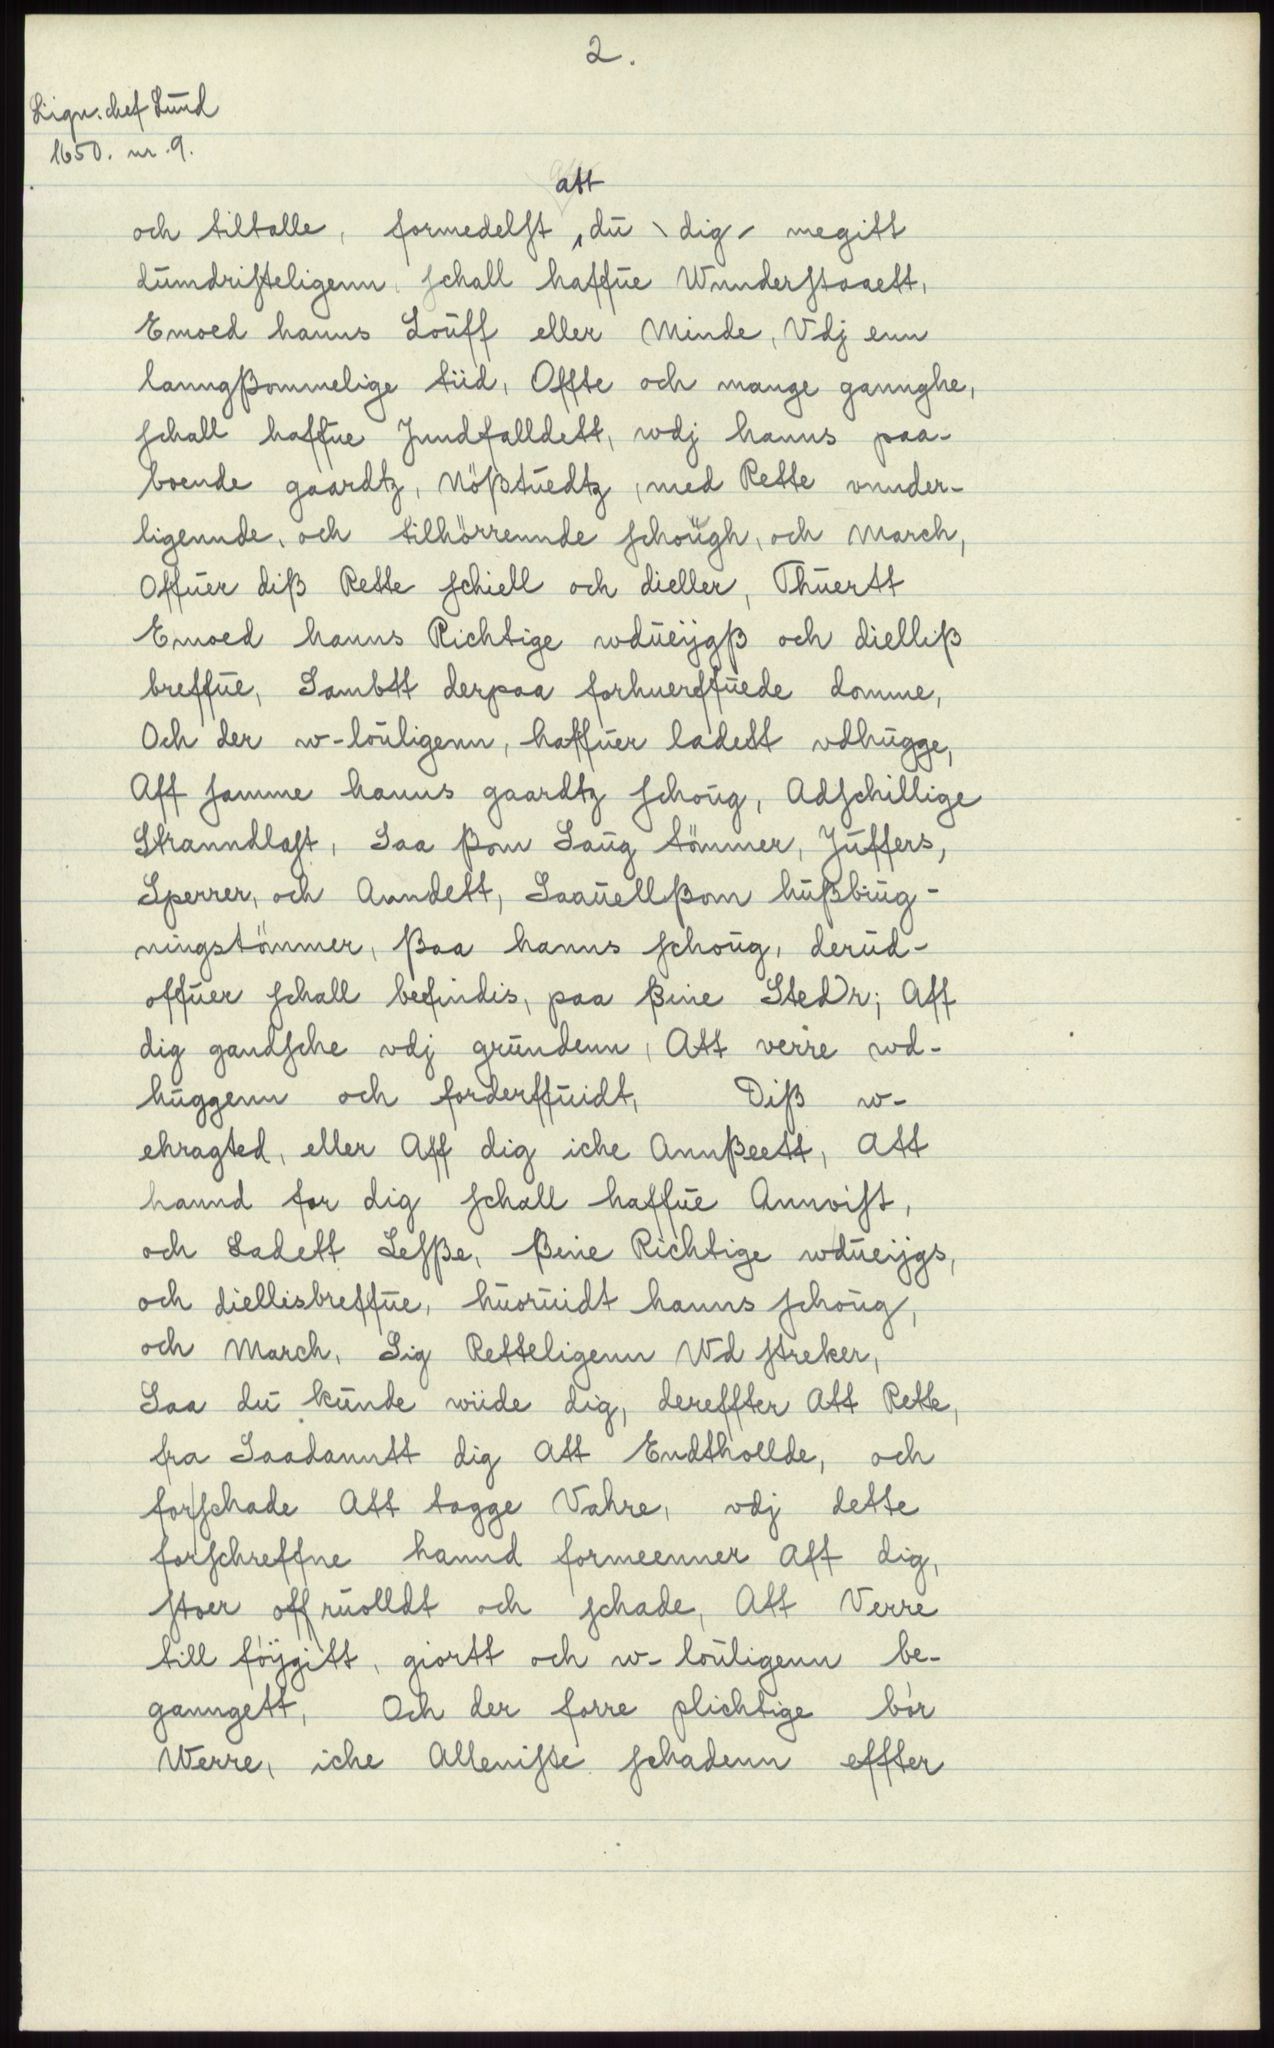 2.
Lign. chef Lund
1650. nr. 9.
att
och tiltalle, formedelſt, du \ dig / megitt
dumdriſteligenn, ſchall haffue Wnnderſtaaett,
Emoed hanns Louff eller Minde, Vdj enn
lanngßommelige tiid, Offte och mange gannghe,
ſchall haffue Jundfalldett, wdj hanns paa-
boende gaardtz, Nößtuedtz, med Rette vnnder-
ligennde, och tilhörrennde ſchough, och March,
Offuer diß Rette ſchiell och dieller, Thuertt
Emoed hanns Richtige wdueijgß och dielliß
breffue, Sambtt derpaa forhuerffuede domme,
Och der w-louligenn, haffuer ladett vdhugge,
Aff ſamme hanns gaardtz ſchoug, Adſchillige
Stranndlaſt, Saa ßom Saug tömmer, Juffers,
Sperrer, och Anndett, Saauellßom hußbiug-
ningstömmer, ßaa hanns ſchoug, derud-
offuer ſchall befindis, paa ßine Stedr; Aff
dig gandſche vdj grundenn, Att verre wd-
huggenn och forderffuidt, Diß w-
ehragted, eller Aff dig iche Annßeett, Att
hannd for dig ſchall haffue Annviſt,
och Ladett Leſße, ßine Richtige wdueijgs,
och diellisbreffue, huoruidt hanns ſchoug,
och March, Sig Retteligenn Wd ſtreker,
Saa du kunde wiide dig, dereffter Att Rette,
fra Saadanntt dig Att Endthollde, och
forſchade Att tagge Vahre, vdj dette
forſchreffne hannd formeenner Aff dig,
ſtoer offruolldt och ſchade, Att Verre
till föijgitt, giortt och w-louligenn be-
ganngett, Och der forre plichtige bör
Werre, iche Alleniſte ſchadenn effter